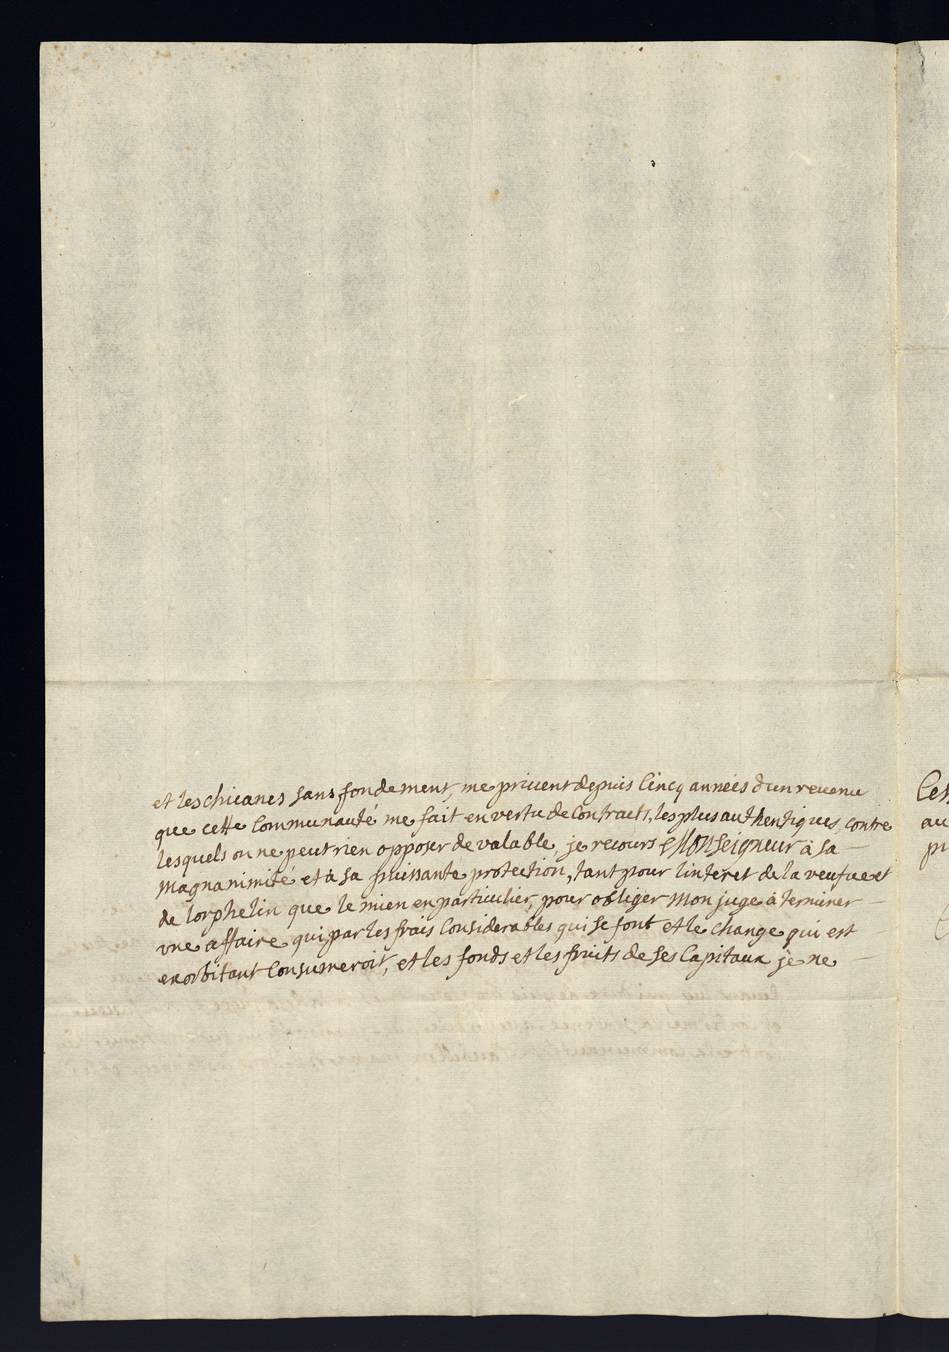 et les chicanes sans fondement me privent depuis cincq années d'un revenu
que cette communauté me fait en vertu de contracts, les plus authentiques, contre
lesquels on ne peut rien opposer de valable, je recours Monseigneur à sa
magnanimité et à sa puissante protection, tant pour l'interet de la veufue et
de lorphelin que le mien en particulier, pour obliger mon juge à terminer
vne affaire qui par les frais considerables qui se font et le change qui est
exorbitant consumeroit, et les fonds et les fruits de ses capitaux je ne